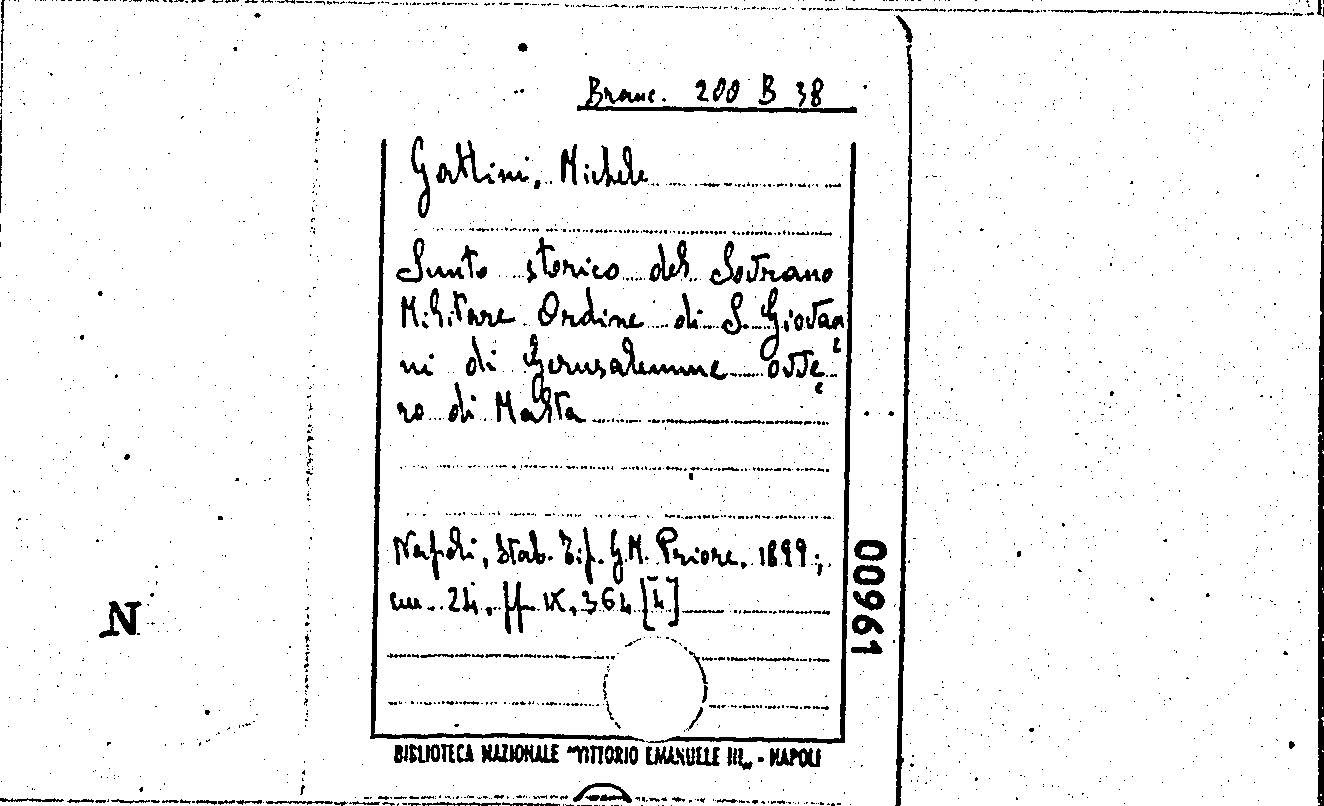 Branc. 200 B 38
Gattini, Michele
Sunto storico del Sovrano
Militare Ordine di S. Giovan
ni di Gerusalemme ovve
ro di Malta
Napoli, Stab. Tip. G.M. Priore, 1899;
cm. 24, pp. IX, 364 [4]
00961
N
BIBLIOTECA NAZIONALE "VITTORIO EMANUELE III„ - NAPOLI